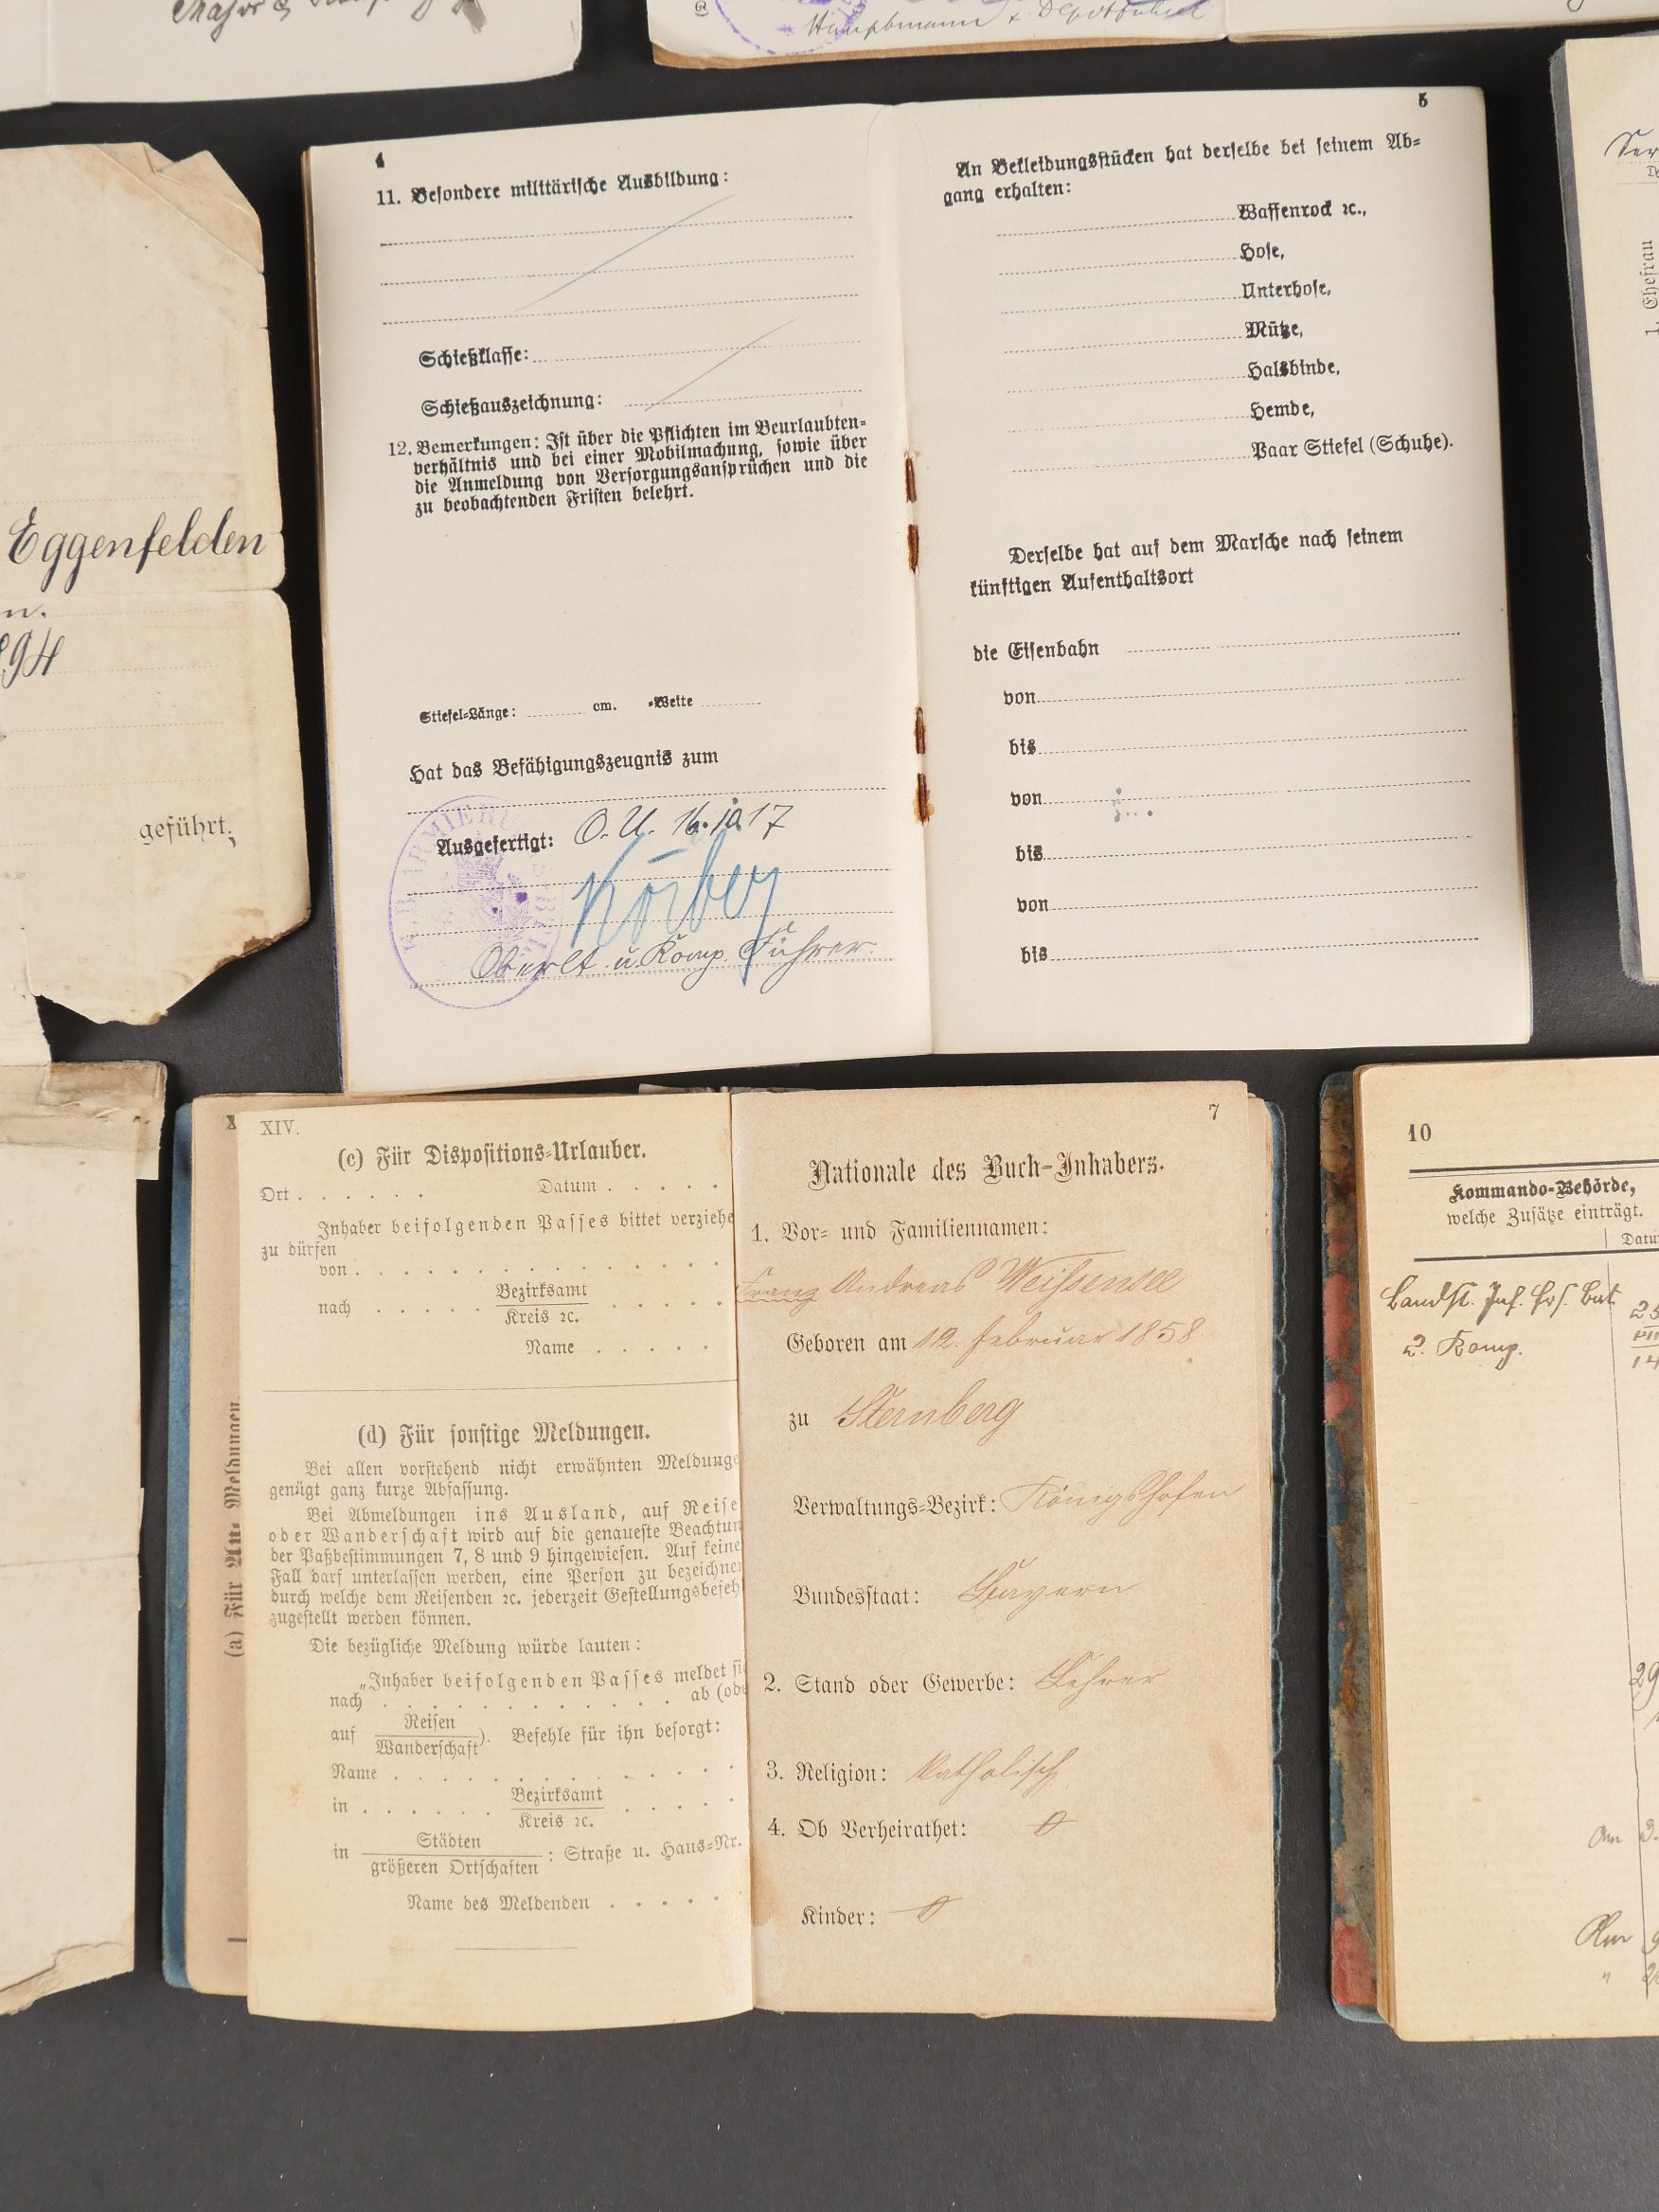 Major &
Hauptmann & Depotführer
Eggenfelden
n.
894
geführt.
4
11. Besondere militärische Ausbildung:
Schießklasse:
Schießauszeichnung:
12. Bemerkungen: Ist über die Pflichten im Beurlaubten-
verhältnis und bei einer Mobilmachung, sowie über
die Anmeldung von Versorgungsansprüchen und die
zu beobachtenden Fristen belehrt.
Stiefel-Länge: cm. -Weite
Hat das Befähigungszeugnis zum
Ausgefertigt: O. U. 16. 10. 17
Körber
Oberlt. u. Komp. Führer.
5
An Bekleidungsstücken hat derselbe bei seinem Ab-
gang erhalten:
Waffenrock ꝛc.,
Hose,
Unterhose,
Mütze,
Halsbinde,
Hemde,
Paar Stiefel (Schuhe).
Derselbe hat auf dem Marsche nach seinem
künftigen Aufenthaltsort
die Eisenbahn
von
bis
von
bis
von
bis
1. Ehefrau
X
(a) Für An- Meldungen
XIV.
(c) Für Dispositions-Urlauber.
Ort . . . . . . Datum . . . . .
Inhaber beifolgenden Passes bittet verziehe
zu dürfen
von . . . . . . . . . . . . . .
nach . . . . . Bezirksamt . . . . .
Kreis ꝛc.
Name . . . . .
(d) Für sonstige Meldungen.
Bei allen vorstehend nicht erwähnten Meldunge
genügt ganz kurze Abfassung.
Bei Abmeldungen ins Ausland, auf Reise
oder Wanderschaft wird auf die genaueste Beachtun
der Paßbestimmungen 7, 8 und 9 hingewiesen. Auf keine
Fall darf unterlassen werden, eine Person zu bezeichnen
durch welche dem Reisenden ꝛc. jederzeit Gestellungsbefeh
zugestellt werden können.
Die bezügliche Meldung würde lauten:
„Inhaber beifolgenden Passes meldet si
nach . . . . . . . . . . . . ab (ode
auf Reisen
Wanderschaft). Befehle für ihn besorgt:
Name . . . . . . . . . . . . .
in . . . . . . Bezirksamt . . . . .
Kreis ꝛc.
in Städten
größeren Ortschaften : Straße u. Haus-Nr.
Name des Meldenden . . . . .
7
Nationale des Buch-Inhabers.
1. Vor- und Familiennamen:
Franz Andreas Weißensee
Geboren am 12. Februar 1858
zu Sternberg
Verwaltungs-Bezirk: Königshofen
Bundesstaat: Bayern
2. Stand oder Gewerbe: Lehrer
3. Religion: katholisch
4. Ob Verheirathet: 0
Kinder: 0
10
Kommando-Behörde,
welche Zusätze einträgt.
Datu
Landst. Inf. Ers. Bat.
2. Komp.